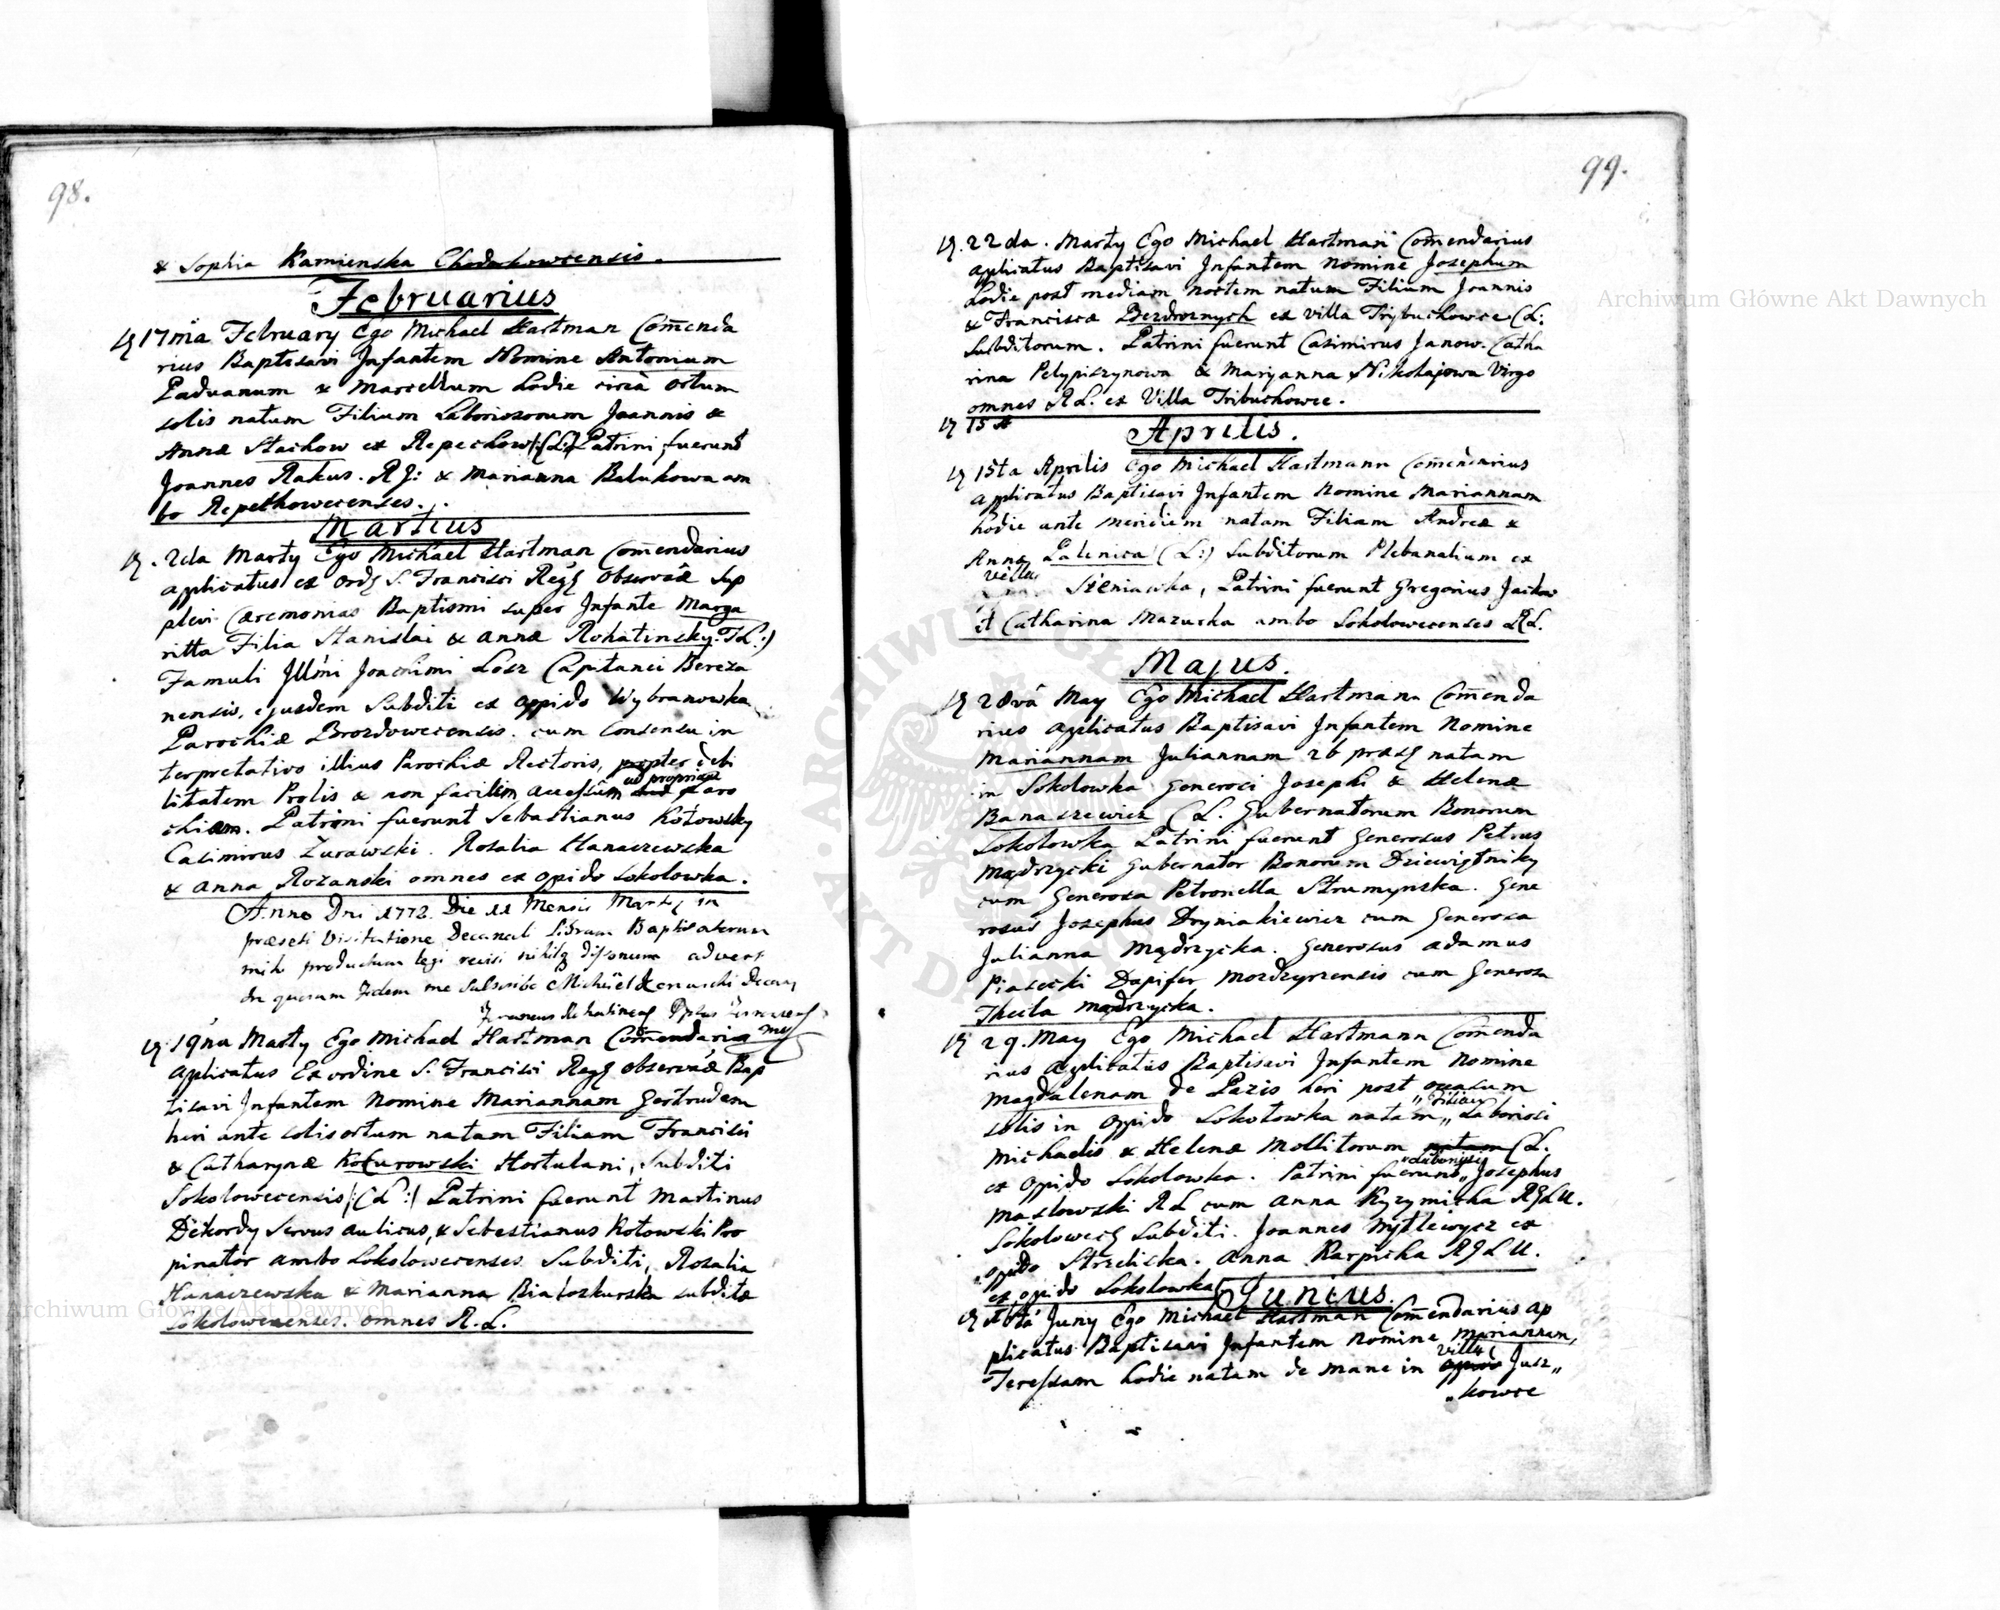 98.
& Sophia Kamienska Chodorkowcensis.
Februarius
17ma February Ego Michael Hartman Com̄enda
rius Baptisavi Infantem Nomine Antonium
Paduanum & Marcellum hodie circa ortum
solis natum Filium Laboriosorum Joannis &
Annæ Stachow ex Repechow (L:) Patrini fuerunt
Joannes Rakus. RJ: & Marianna Balukowa am
bo Repechowecenses.
Martius
2da Marty Ego Michael Hartman Com̄endarius
applicatus ex Ord S. Francisci Reg Observa Sup
plevi Cæremonias Baptismi super Infante Marga
ritta Filia Stanislai & Annæ Rohatinsky. (L:)
Famuli Illmi Joachimi Losz Capitanei Bereza
nensis, ejusdem Subditi ex Oppido Wybranowka
Parochiæ Brozdowecensis. cum Consensu in
terpretativo illius Parochiæ Rectoris, propter debi
litatem Prolis & non facilem accessum ad propriam Paro
chiam. Patrini fuerunt Sebastianus Kotowsky
Casimirus Zurawski. Rosalia Hanaczewska
& Anna Rozanski omnes ex Opido Sokolowka.
Anno Dni 1772. Die 11 Mensis Marty in
Visitatione Decanal Librum Baptisatorum
mihi productum legi nihilq dissonum advert
quorum fidem me Subscribo Michael
19na Marty Ego Michael Hartman Com̄endarius
Aplicatus Ex ordine S. Francisci Reg Observa Bap
tisavi Infantem Nomine Mariannam Gertrudem
heri ante solis ortum natam Filiam Francisci
& Catharynæ Kocurowski Hortulani, Subditi
Sokolowecensis (L:) Patrini fuerunt Martinus
Dekordy Servus aulicus, & Sebestianus Kotowski Pro
pinator ambo Sokolowecenses Subditi, Rosalia
Hanaczewska & Marianna Bialozkurska subditæ
Sokolowecenses. omnes R.L.
99.
22da. Marty Ego Michael Hartman Com̄endarius
applicatus Baptisavi Infantem nomine Josephum
hodie post mediam noctem natum Filium Joannis
& Franciscæ Bezdroznych ex villa Trybuchowce (L:
Subditorum. Patrini fuerunt Casimirus Janow. Catha
rina Pelypiszynowa & Maryanna Nikolajowa Virgo
omnes RL. ex Villa Tribuchowce.
15 A
Aprilis.
15ta Aprilis Ego Michael Hartmann Com̄endarius
applicatus Baptisavi Infantem Nomine Mariannam
hodie ante meridiem natam Filiam Andreæ &
Annæ Palenica (L:) Subditorum Plebanalium ex
villa Sieniawka, Patrini fuerunt Gregorius Jackow
et Catharina Mazurka ambo Sokolowecenses RL.
Majus.
28va May Ego Michael Hartmann Com̄enda
rius applicatus Baptisavi Infantem Nomine
Mariannam Juliannam 26 præs natam
in Sokolowka Generosi Josephi & Helenæ
Banaszewicz (L. Gubernatorum Bonorum
Sokolowka Patrini fuerunt Generosus Petrus
Mądrzycki Gubernator Bonorum Dziewiętniky
cum Generosa Petronella Strumynska. Gene
rosus Josephus Dryniakiewicz cum Generosa
Julianna Mądrzycka. Generosus Adamus
Piasecki Dapifer Mozdzyrzensis cum Generosa
Thecla Mądrzycka.
29. May Ego Michael Hartmann Com̄enda
rius Applicatus Baptisavi Infantem Nomine
Magdalenam de Pazis heri post occasum
solis in Oppido Sokolowka natam „Filiam„ Laboriosi
Michaelis & Helenæ Mollitorum natam (L.
ex Oppido Sokolowka. Patrini fuerunt „Laboriosi„ Josephus
Maslowski RL cum Anna Kyzymicha RGLU.
Sokolowec Subditi. Joannes Wytlewycz ex
Opido Strzeliska. Anna Karpicha RGLU.
ex opido Sokolowka
Junius.
Juny Ego Michael Hartman Com̄endarius ap
plicatus Baptisavi Infantem Nomine Mariannam,
Teressam hodie natam de mane in villa Jusz„
„kowce
Archiwum Główne Akt Dawnych
Archiwum Główne Akt Dawnych
ARCHIWUM GŁÓWNE AKT DAWNYCH